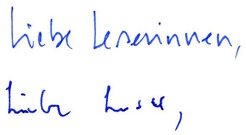 Liebe Leserinnen,
Liebe Leser,